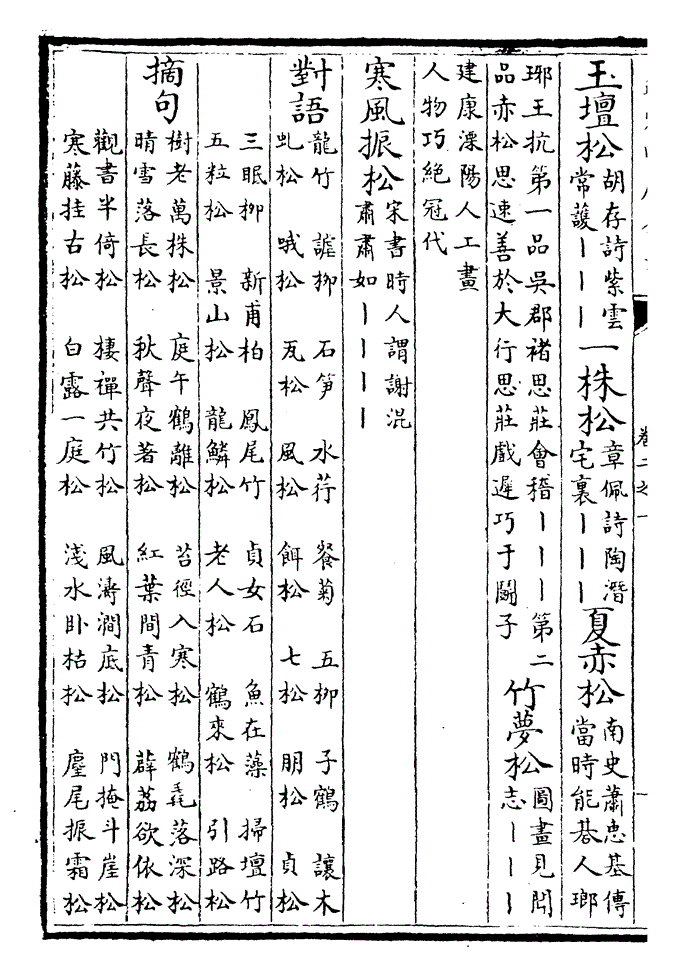 玉壇松 胡存詩紫雲
常護丨丨丨
一株松 章佩詩陶潛
宅裏丨丨丨
夏赤松 南史蕭惠基傳
當時能碁人瑯
琊王抗第一品吳郡褚思莊會稽丨丨丨第二
品赤松思速善於大行思莊戲遲巧于鬭子
竹夢松 圖畫見聞
志丨丨丨
建康溧陽人工畫
人物巧絕冠代
寒風振松 宋書時人謂謝混
肅肅如丨丨丨丨
對語 龍竹 謔柳 石筍 水荇 餐菊 五柳 子鶴 讓木
虬松 哦松 瓦松 風松 餌松 七松 朋松 貞松
三眠柳 新甫柏 鳳尾竹 貞女石 魚在藻 掃壇竹
五粒松 景山松 龍鱗松 老人松 鶴來松 引路松
摘句 樹老萬株松 庭午鶴離松 苔徑入寒松 鶴毳落深松
晴雪落長松 秋聲夜著松 紅葉間青松 薜荔欲依松
觀書半倚松 棲禪共竹松 風濤澗底松 門掩斗崖松
寒藤挂古松 白露一庭松 淺水卧枯松 麈尾振霜松
卷二之一